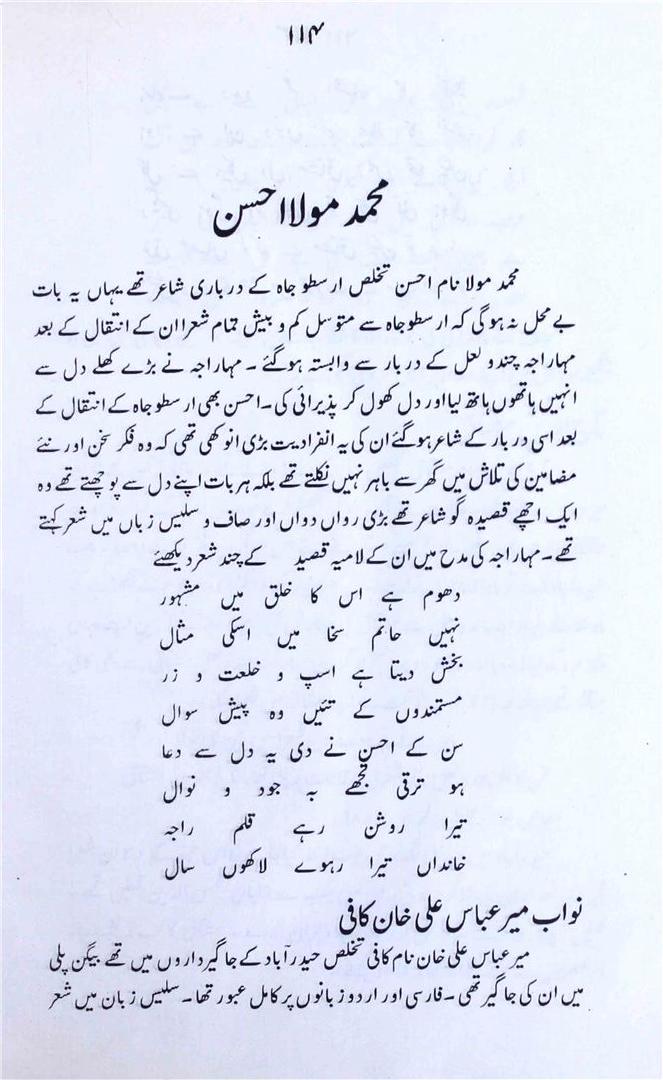 ۱۱۴
محمد مولا احسن
محمد مولا نام احسن تخلص ارسطو جاہ کے درباری شاعر تھے یہاں یہ بات
بے محل نہ ہوگی کہ ارسطو جاہ سے متوسل کم و بیش تمام شعرا ان کے انتقال کے بعد
مہاراجہ چندو لعل کے دربار سے وابستہ ہوگئے ۔ مہاراجہ نے بڑے کھلے دل سے
انہیں ہاتھوں ہاتھ لیا اور دل کھول کر پذیرائی کی ۔ احسن بھی ارسطو جاہ کے انتقال کے
بعد اسی دربار کے شاعر ہوگئے ان کی یہ انفرادیت بڑی انوکھی تھی کہ وہ فکر سخن اور نئے
مضامین کی تلاش میں گھر سے باہر نہیں نکلتے تھے بلکہ ہر بات اپنے دل سے پوچھتے تھے وہ
ایک اچھے قصیدہ گو شاعر تھے بڑی رواں دواں اور صاف و سلیس زباں میں شعر کہتے
تھے ۔ مہاراجہ کی مدح میں ان کے لامیہ قصید کے چند شعر دیکھئے
دھوم ہے اس کا خلق میں مشہور
نہیں حاتم سخا میں اسکی مثال
بخش دیتا ہے اسپ و خلعت و زر
مستمندوں کے تئیں وہ پیش سوال
سن کے احسن نے دی یہ دل سے دعا
ہو ترقی تجھے بہ جود و نوال
تیرا روشن رہے قلم راجہ
خانداں تیرا رہوے لاکھوں سال
نواب میر عباس علی خان کافی
میر عباس علی خان نام کافی تخلص حیدرآباد کے جاگیرداروں میں تھے بیگن پلی
میں ان کی جاگیر تھی ۔ فارسی اور اردو زبانوں پر کامل عبور تھا ۔ سلیس زبان میں شعر